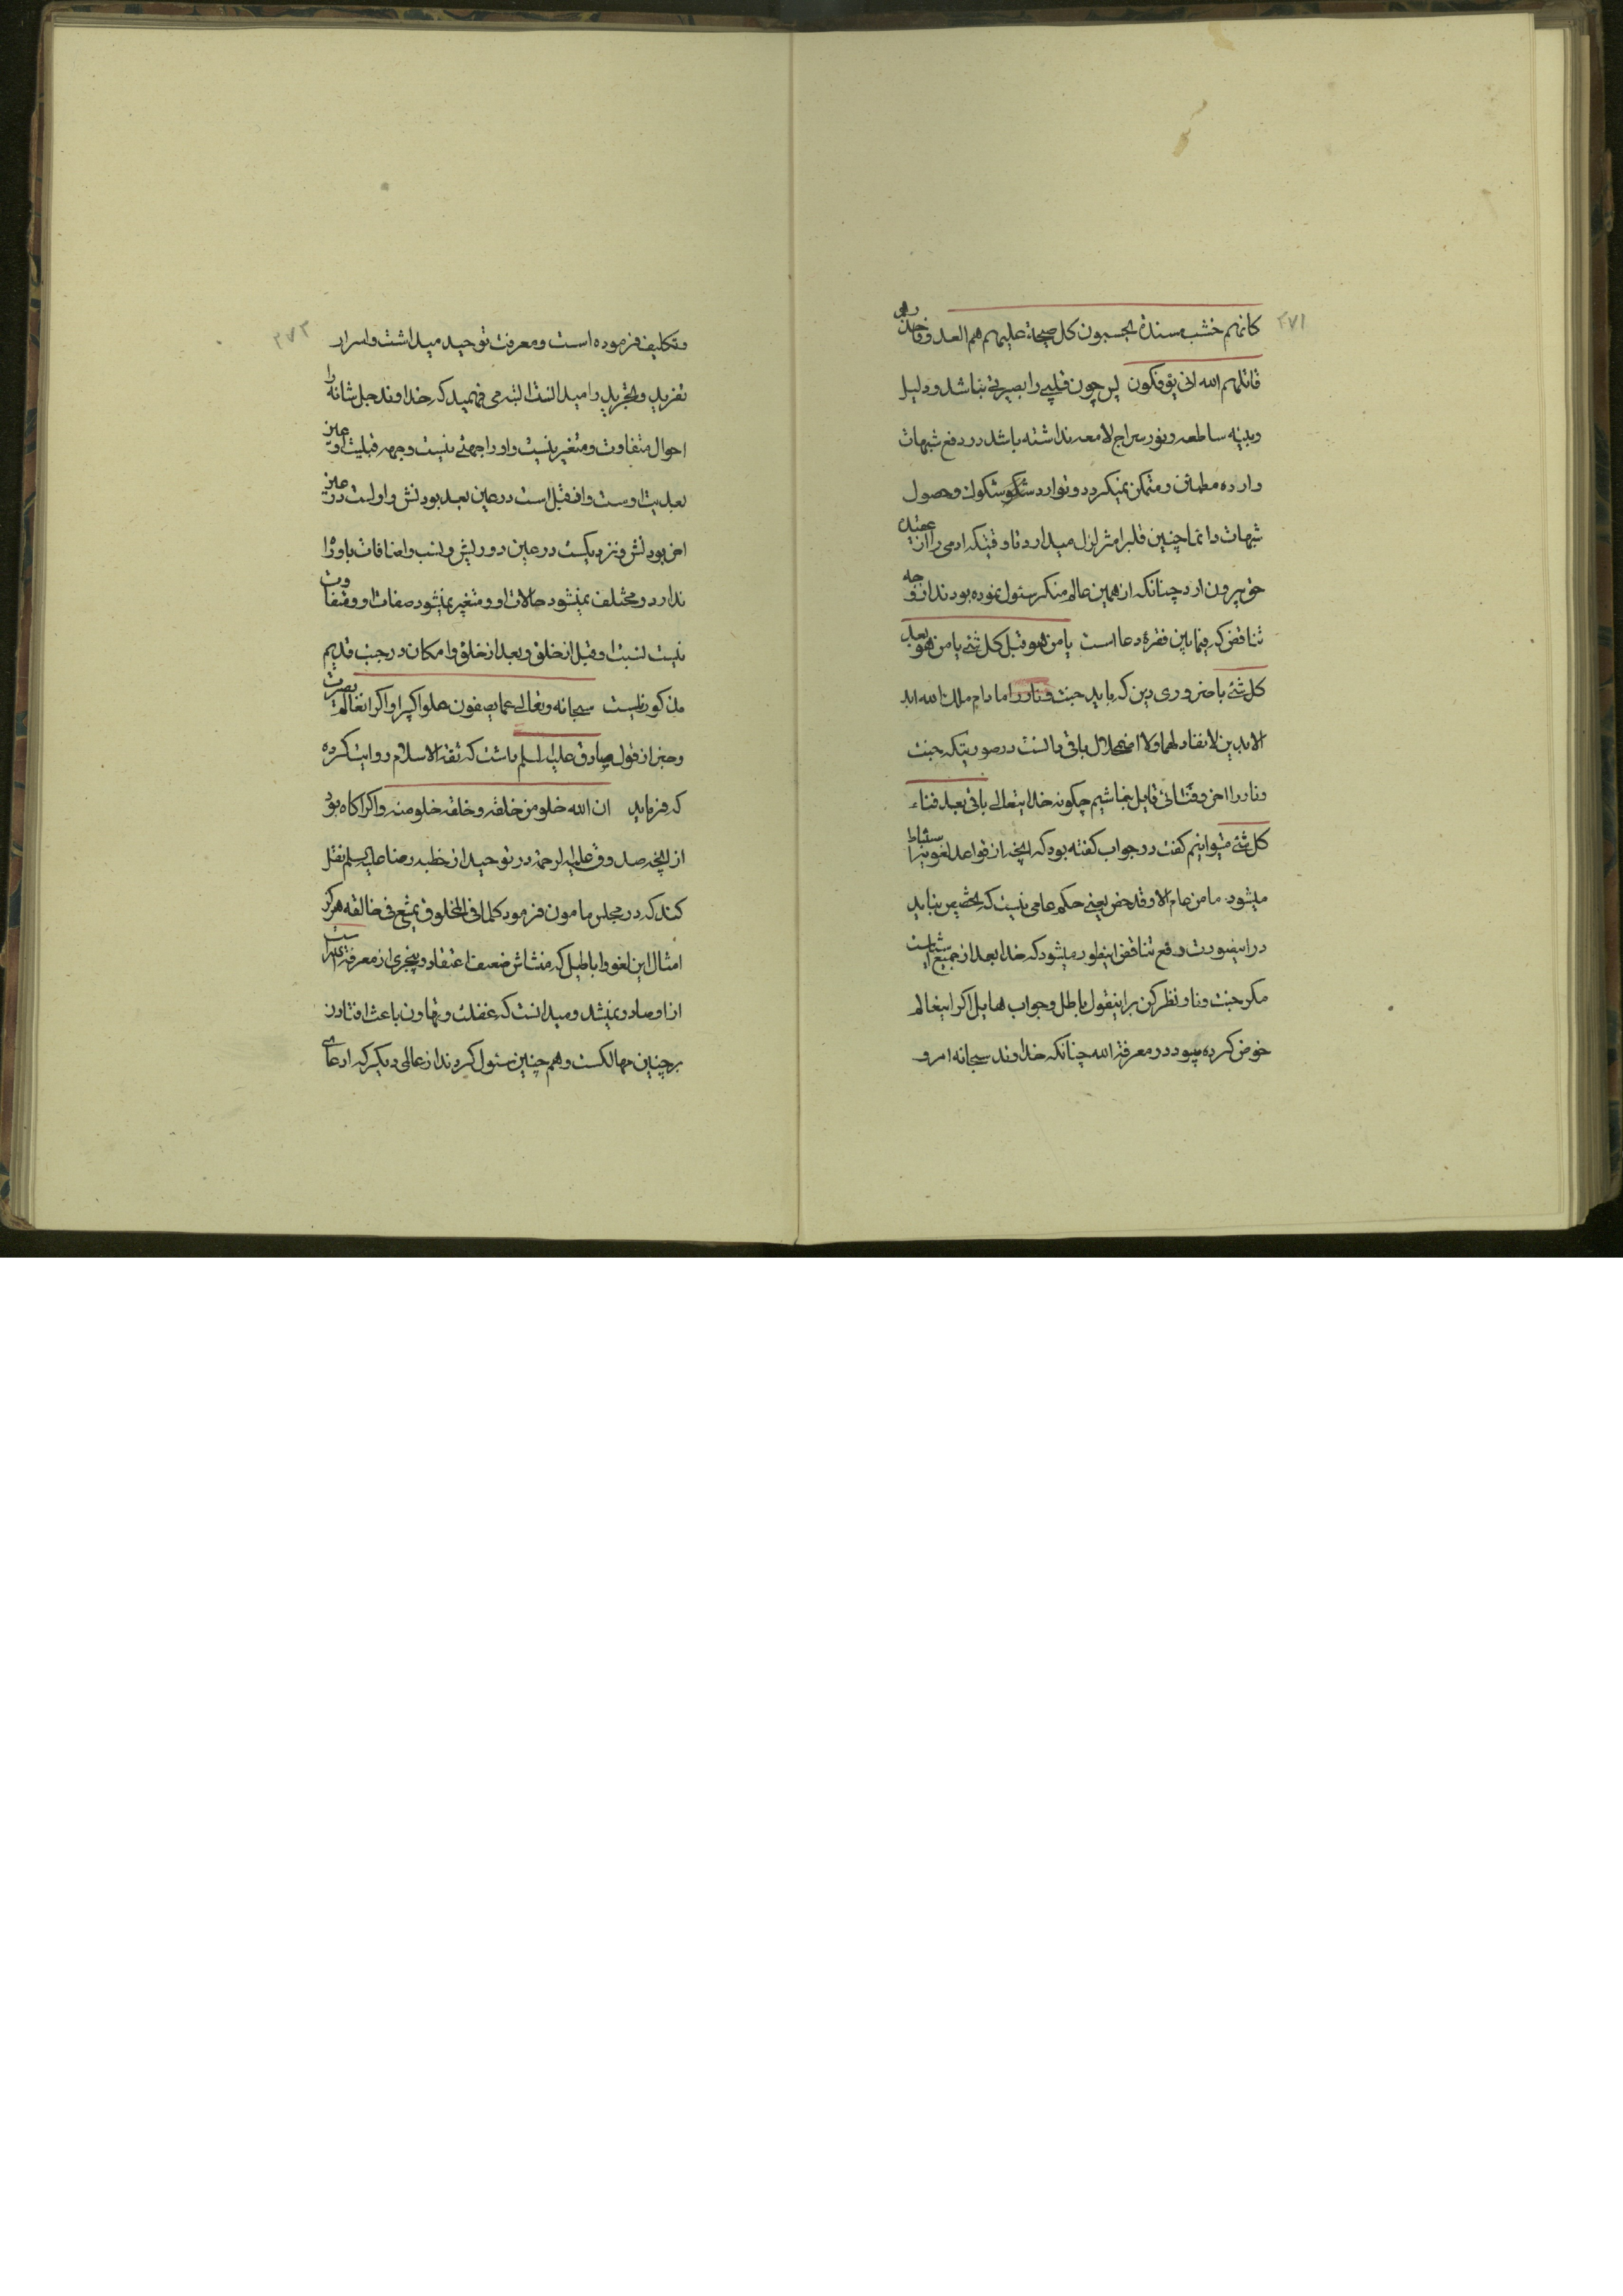 ۲۷۱
کانهم خشب مسندة یحسبون کل صیحة علیهم هم العدو فاحذرهم
قاتلهم الله انی یؤفکون پس چون قلبی را بصیرتی نباشد و دلیل
وبینه ساطعه و نور سراج لامعه نداشته باشد در دفع شبهات
وارده مطمئن و متمکن نمیکردد و توارد شکوک و حصول
شبهات دائما چنین قلبرا متزلزل میدارد تا وقتیکه ادمی را از عقیده
حق بیرون ارد چنانکه از همین عالم منکر سئول نموده بودند از وجه
تناقض که فیمابین فقرهٔ دعا است یا من هو قبل کل شئ یا من هو بعد
کل شئ با ضروری دین که باید جنت و نار را مادام ملک الله ابد
الابدین لا نفاد لهما ولا اضمحلال باقی دانست در صورتیکه جنت
و نار را اخر وقتائی قایل نباشیم چکونه خدایتعالی باقی بعد فناء
کل شئ میتوانیم کفت در جواب کفته بوه که انچه از قواعد لغویه استنباط
میشود ما من عام الا وقد خص یعنی حکم عامی نیست که تخصیص نیابد
در اینصورت رفع تناقض اینطور میشود که خدا بعد از جمیع اشیاست
مکر جنت و نار نظر کن براینقول باطل و جواب هایل اکر اینعالم
خوض کرده میبود در معرفة الله چنانکه خداوند سبحانه امر و
۲۷۲
و تکلیف فرموده است و معرفت توحید میداشت و اسرار
تفرید و تجرید را میدانست البته می فهمید که خداوند جل شانه را
احوال متفاوت و متغیر نیست و او را جهتی نیست وجهه قبلیت او عین
بعدیت اوست و او قبل است در عین بعد بودنش و اول است در عین
اخر بودنش و نزدیکست در عین دوریش و نسب و اضافات باو راه
ندارد و مختلف نمیشود حالات او و متغیر نمیشود صفات او و تفاوت
نیست نسبت او قبل از خلق و بعد از خلق و امکان در جنب قدیم
مذکور نیست سبحانه وتعالی عما یصفون علوا کبیرا و اکر انعالم بصیرت
و خبر از قول صادق علیه السلم داشت که ثقة الاسلام روایت کرده
که فرماید ان الله خلو من خلقه وخلقه خلو منه و اکر اکاه بود
از انچه صدوق علیه الرحمة در توحید از خطبه رضا علیه السلم نقل
کند که در مجلس مامون فرمود کلما فی المخلوق یمتنع فی خالقه هرکز
امثال این لغو و اباطیل که منشاش ضعف اعتقاد و بیخبری از معرفة الله است
از او صادر نمیشد و میدانست که غفلت و تهاون باعث افتادن
بر چنین مهالکست و هم چنین سئول کردند از عالمی دیکر که ادعای